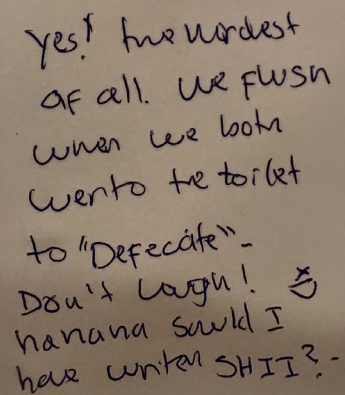 Yes! the wordest
of all. We flush
when we both
wento the toilet
to "Defecate"-
Don't laugh!
hahaha sould I
have writen SHII?-